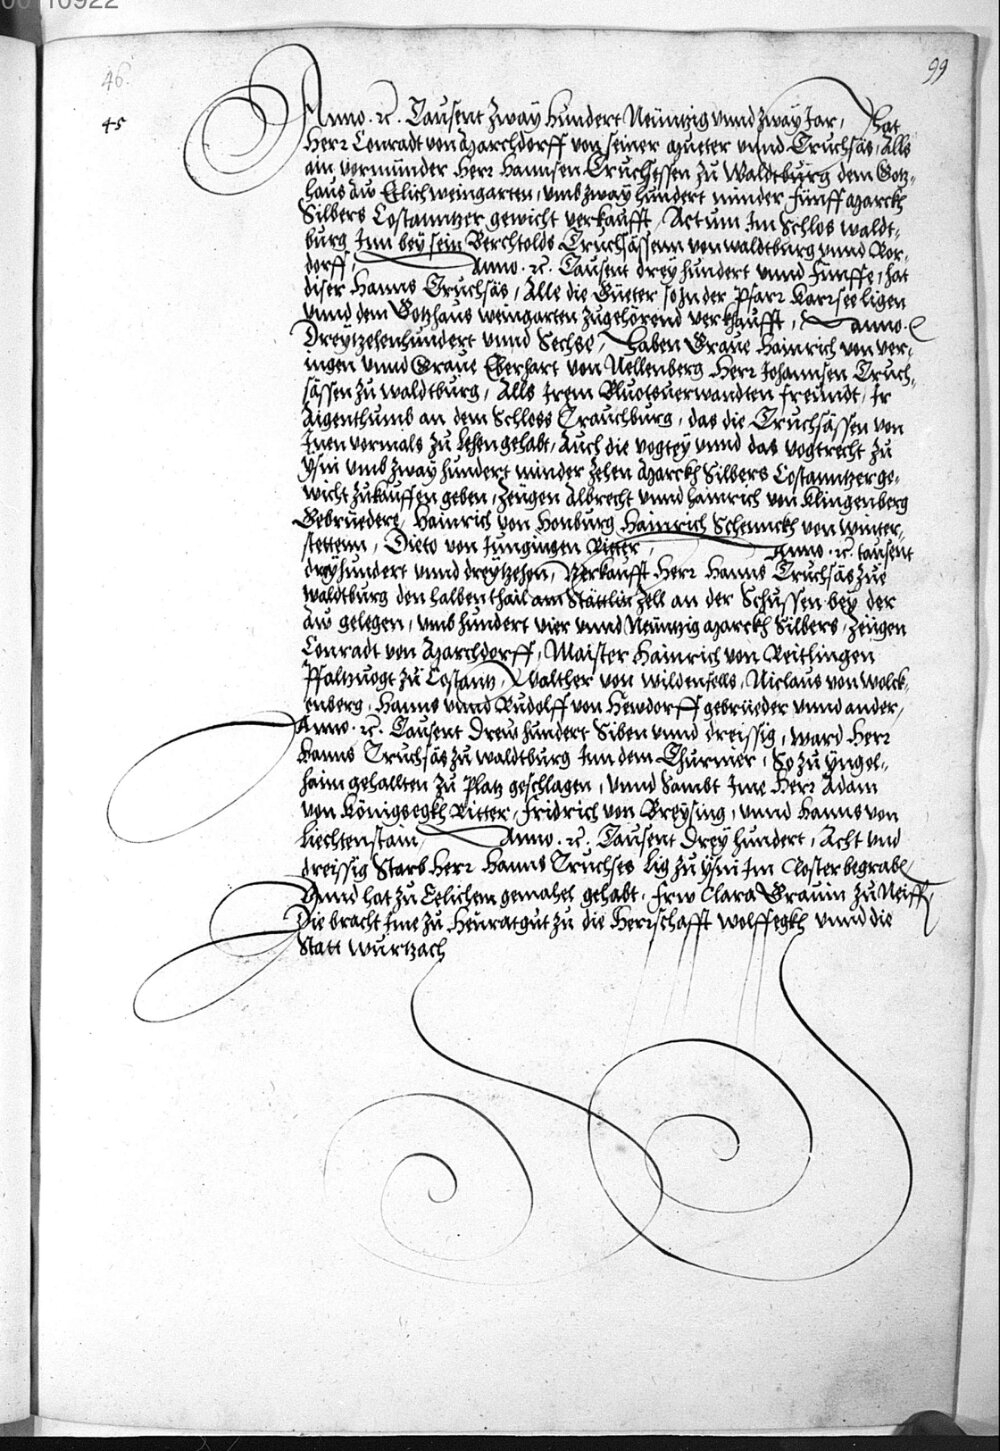 00110922
46.
99
45
Anno ⁊c. Tausent Zway hundert Neüntzig vnnd zway Jar, Hat
Herr Conradt von Marchdorff von seiner Mueter vnnd Truchsäs, Alls
ain vormünder Herr Hannsen Truchsessen zu Waldtburg dem Gotz-
haus Aw Etlich weingarten, vmb zway hundert minder Fünff Marckh
Silbers Costanntzer gewicht verkaufft, Actum Im Schlos waldt-
burg Inn bey sein Berchtolds Truchsässenn von waldtburg vnnd Ror-
dorff, Anno ⁊c. Tausent drey hundert vnnd Fünffe, hat
diser Hanns Truchsäs, Alle die Güeter so In der Pfarr Karrsee ligen
vnnd dem Gotzhaus weingarten zugehörend verkhaufft, Anno ⁊c
Dreytzehenhundert vnnd Sechse, Haben Graue Hainrich von ver-
ingen vnnd Graue Eberhart von Nellenberg Herr Johannsen Truch-
sässen zu waldtburg, Alls Irem Bluotsverwandten freundt, Ir
Aigenthumb an dem Schloss Trauchburg, das die Truchsässen von
Inen vormals zu Lehen gehabt, Auch die vogtey vnnd das vogtrecht zu
Ysni vmb zway hundert minder zehen Marckh Silbers Costanntzer ge-
wicht zukauffen geben, Zeügen Albrecht vnnd hainrich von Klingenberg
Gebrüedere, Hainrich von Honburg Hainrich Schennckh von winter-
stettenn, Dieto von Jungingen Ritter, Anno ⁊c. tausent
dreyhundert vnnd dreytzehen, Verkaufft Herr Hanns Truchsäs zue
waldtburg den halben thail am Stättlin Zell an der Schussen bey der
Aw gelegen, vmb hundert vier vnnd Neüntzig Marckh Silbers, Zeügen
Conradt von Marchdorff, Maister Hainrich von Reitlingen
Pfaltzuogt zu Costantz, Walther von wildenfells, Niclaus von wolck-
enberg, Hanns vnnd Rudolff von Hewdorff gebrüeder vnnd ander,
Anno ⁊c. Tausent Drew hundert Siben vnnd dreissig, ward Herr
Hanns Truchsäs zu waldtburg Inn dem Thurnier, So zu Yngel-
haim gehallten zu Platz geschlagen, vnnd Sambt Ime Herr Adam
von Königsegkh Ritter, Fridrich von Freysing, vnnd Hanns von
Liechtenstain, Anno ⁊c. Tausent Drey hundert, Acht vnd
dreissig Starb Herr Hanns Truchses Lig zu Ysni Im Closter begraben
Vnnd hat zu Eelichem gemahel gehabt, Frw Clara Grauin zu Neiffen
Die bracht Ime zu Heuratgut zu die Herrschafft wolffegkh vnnd die
Statt wurtzach